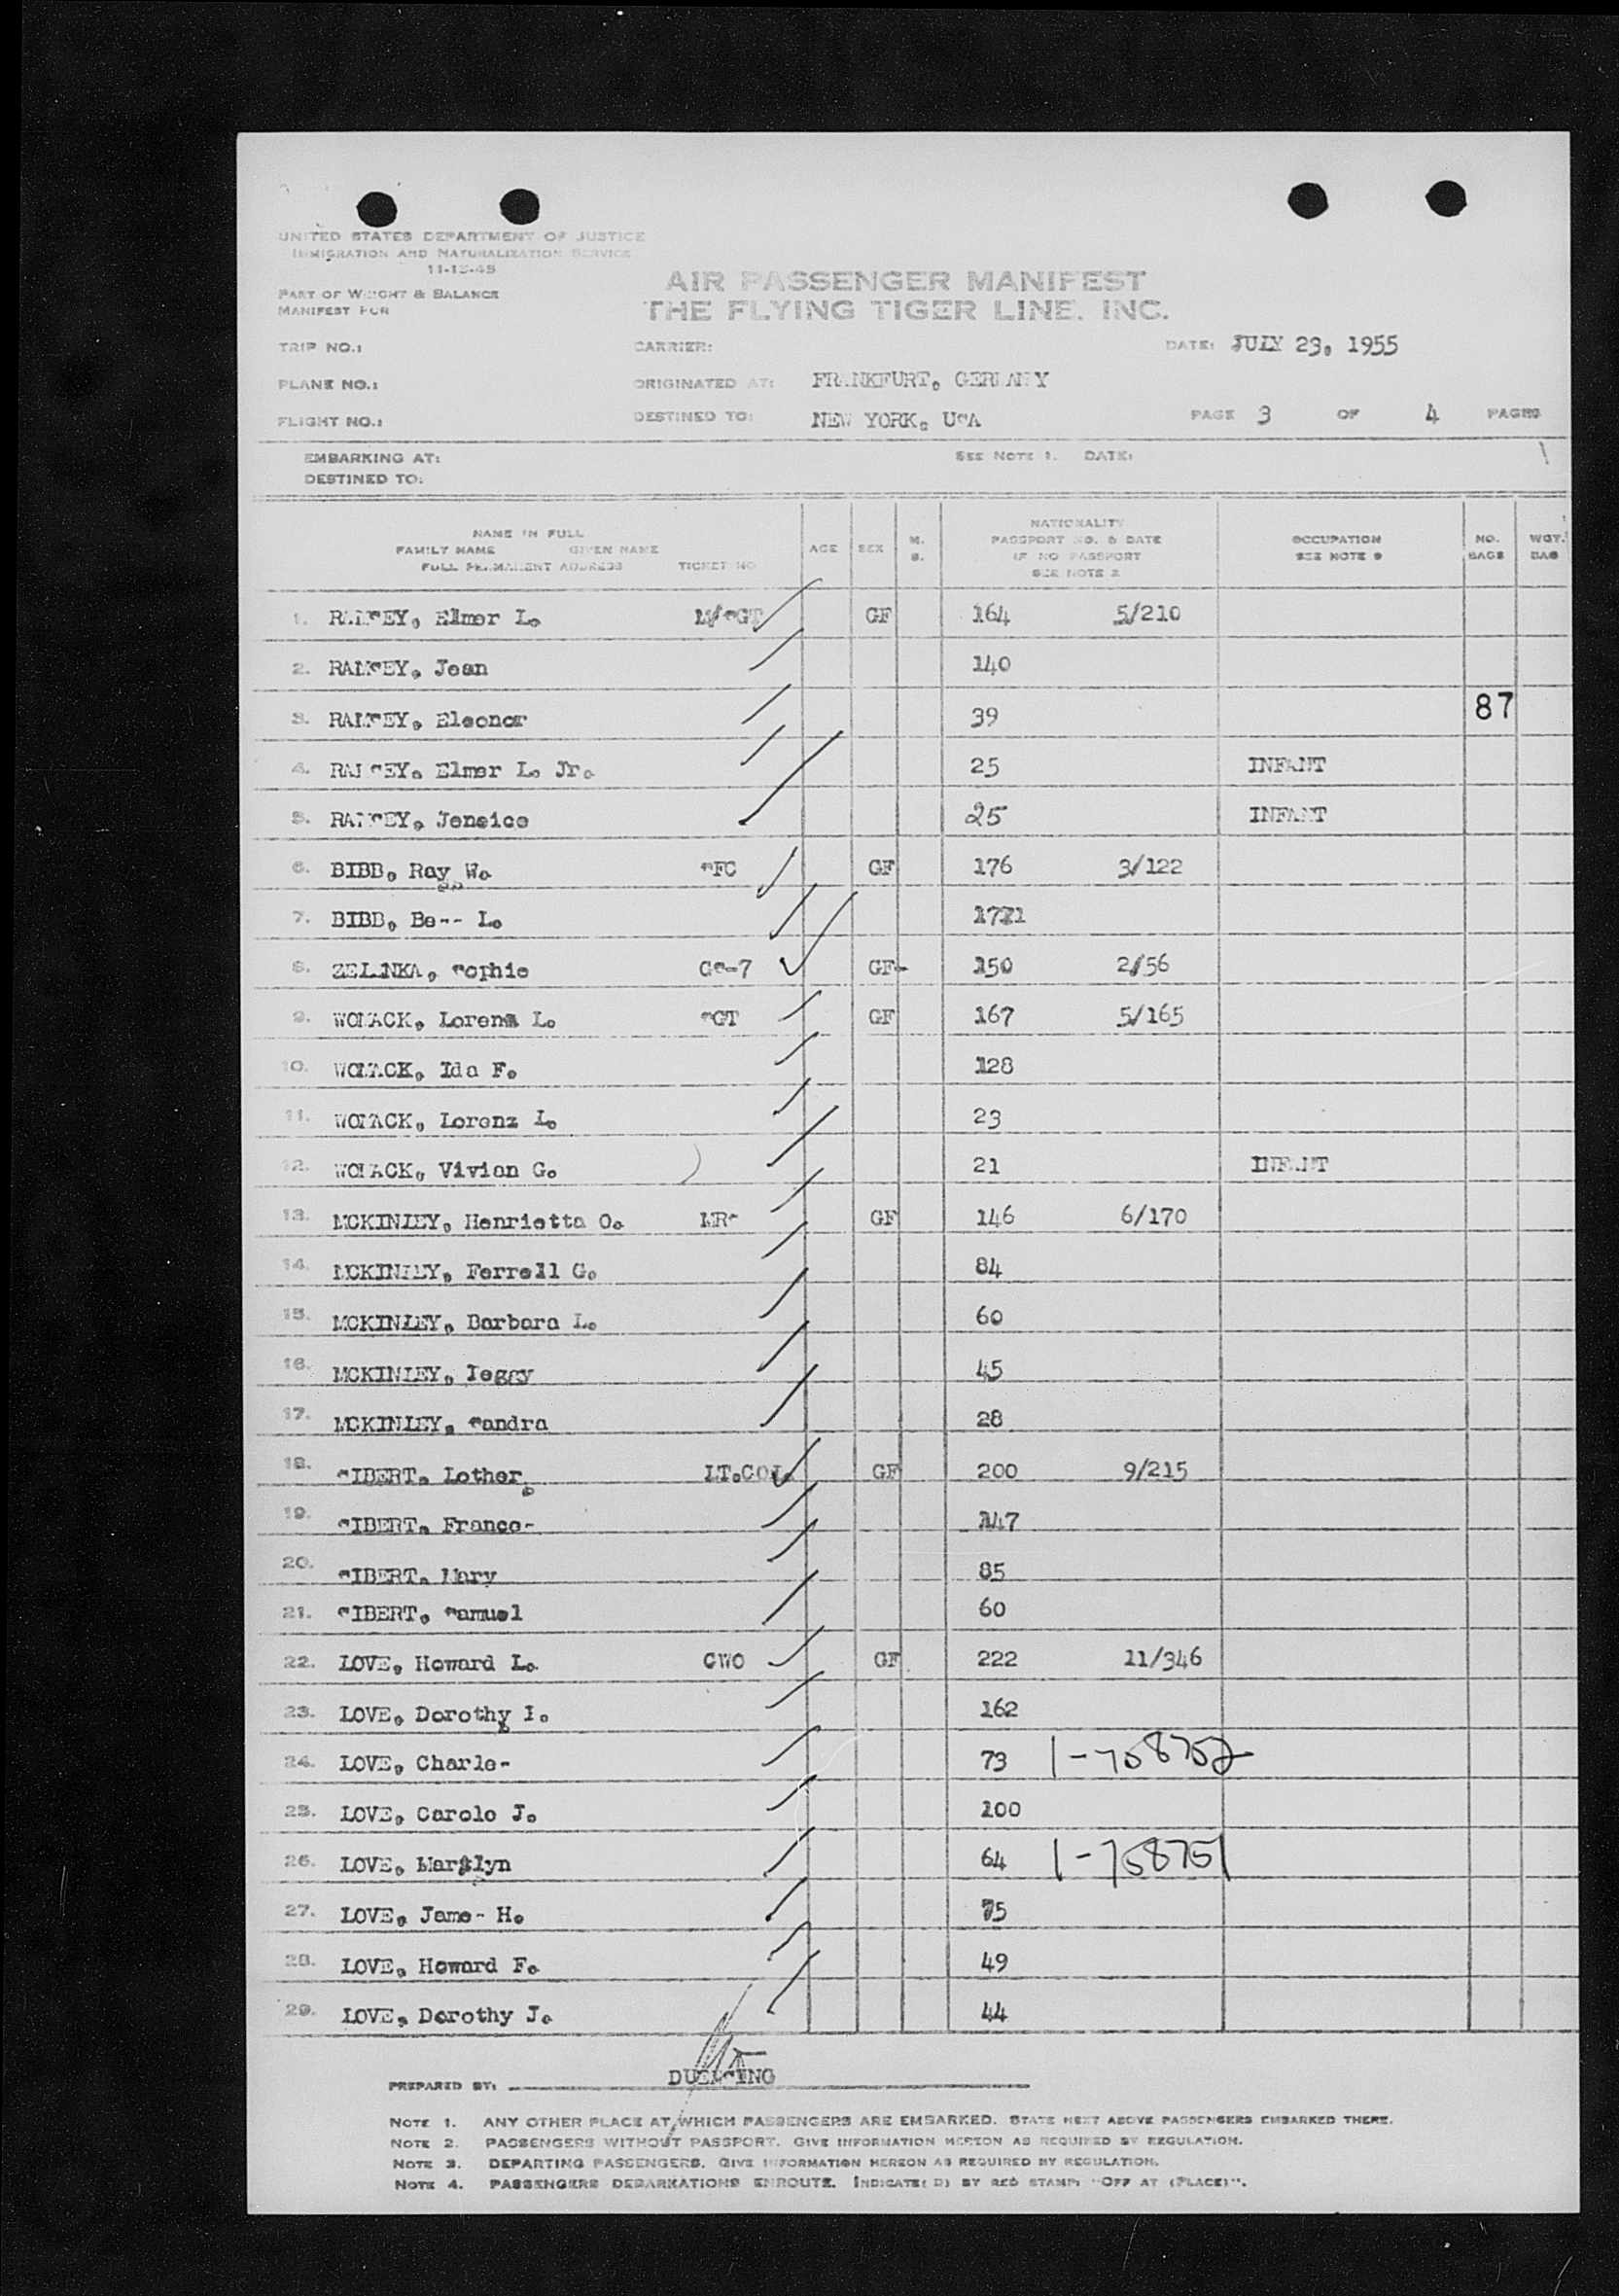 UNITED STATES DEPARTMENT OF JUSTICE
IMMIGRATION AND NATURALIZATION SERVICE
11-15-45
PART OF WEIGHT & BALANCE
MANIFEST FOR
AIR PASSENGER MANIFEST
THE FLYING TIGER LINE, INC.
TRIP NO.: CARRIER: DATE: JULY 23, 1955
PLANE NO.: ORIGINATED AT: FRANKFURT, GERMANY
FLIGHT NO.: DESTINED TO: NEW YORK, USA PAGE 3 OF 4 PAGES
EMBARKING AT: SEE NOTE 1. DATE:
DESTINED TO:
NAME IN FULL
FAMILY NAME GIVEN NAME
FULL PERMANENT ADDRESS TICKET NO AGE SEX M. S. NATIONALITY PASSPORT NO. & DATE IF NO PASSPORT SEE NOTE 2 OCCUPATION SEE NOTE 9 NO. BAGS WGT. BAG
1. RAMSEY, Elmer L. M/SGT GF 164 5/210
2. RAMSEY, Jean 140
3. RAMSEY, Eleonor 39 87
4. RAMSEY, Elmer L. Jr. 25 INFANT
5. RAMSEY, Jensice 25 INFANT
6. BIBB, Ray W. SFC GF 176 3/122
7. BIBB, Bess L. 171
8. ZELINKA, Sophie GS-7 GF- 150 2/56
9. WOMACK, Lorena L. SGT GF 167 5/165
10. WOMACK, Ida F. 128
11. WOMACK, Lorenz L. 23
12. WOMACK, Vivian G. 21 INFANT
13. MCKINLEY, Henrietta O. MRS GF 146 6/170
14. MCKINLEY, Ferrell G. 84
15. MCKINLEY, Barbara L. 60
16. MCKINLEY, Peggy 45
17. MCKINLEY, Sandra 28
18. SIBERT, Lother LT.COL. GF 200 9/215
19. SIBERT, Frances 147
20. SIBERT, Mary 85
21. SIBERT, Samuel 60
22. LOVE, Howard L. CWO GF 222 11/346
23. LOVE, Dorothy I. 162
24. LOVE, Charles 73 1-758752
25. LOVE, Carole J. 100
26. LOVE, Marilyn 64 1-758751
27. LOVE, James H. 75
28. LOVE, Howard F. 49
29. LOVE, Dorothy J. 44
PREPARED BY:
NOTE 1. ANY OTHER PLACE AT WHICH PASSENGERS ARE EMBARKED. STATE NEXT ABOVE PASSENGERS EMBARKED THERE.
NOTE 2. PASSENGERS WITHOUT PASSPORT. GIVE INFORMATION HEREON AS REQUIRED BY REGULATION.
NOTE 3. DEPARTING PASSENGERS. GIVE INFORMATION HEREON AS REQUIRED BY REGULATION.
NOTE 4. PASSENGERS DEBARKATIONS ENROUTE. INDICATE( D) BY RED STAMP: "OFF AT (PLACE)".